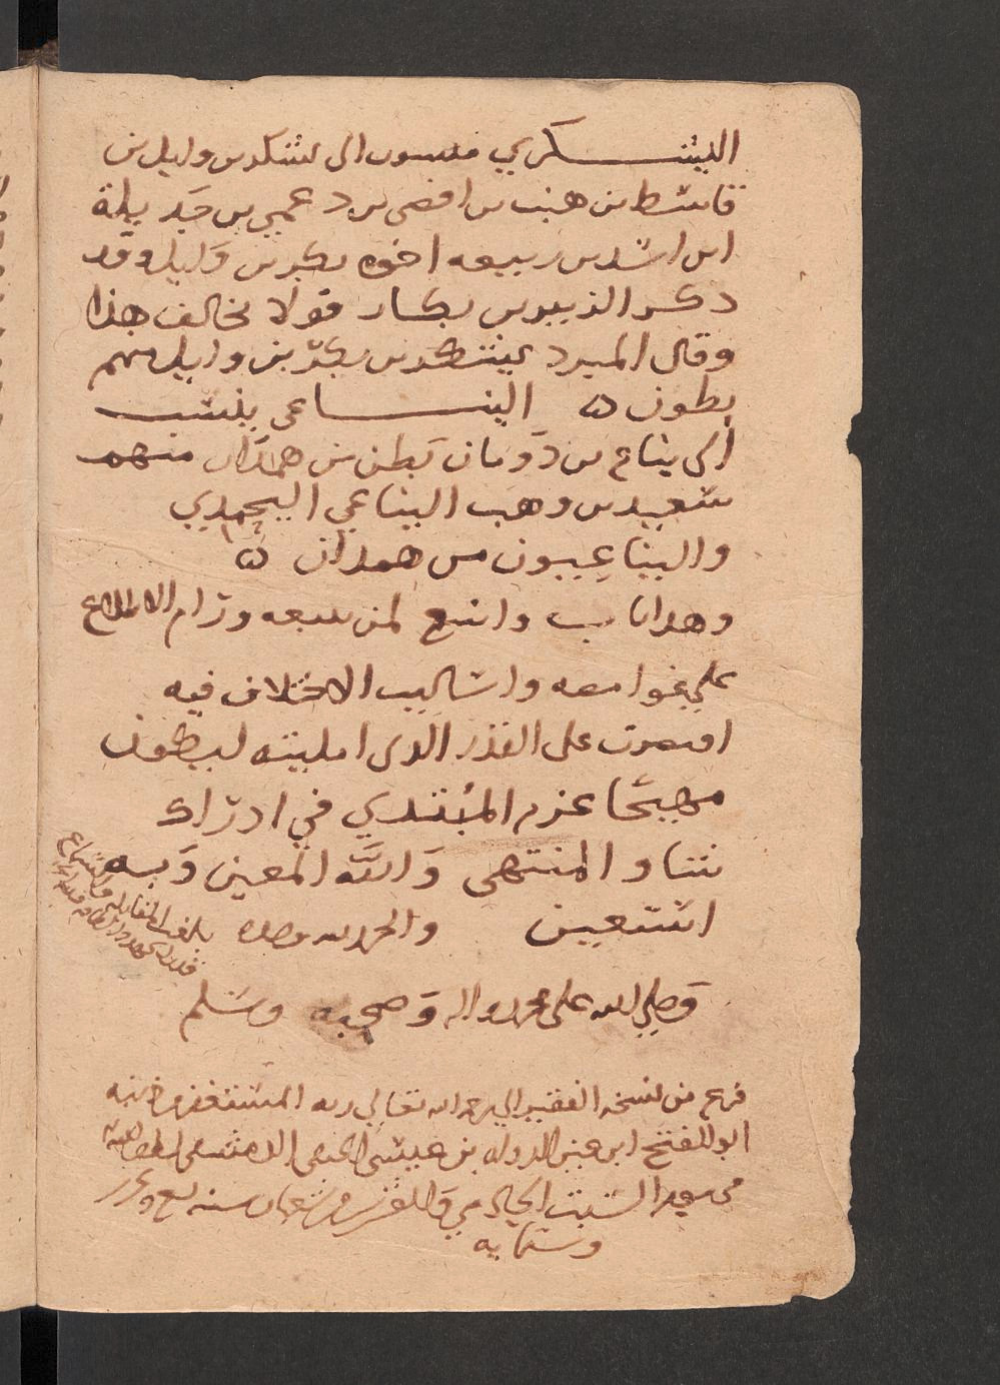 اليشكري منسوب الى يشكر بن وايل بن
قاسط بن هنب بن افصى بن دعمي بن جديلة
ابن اسد بن ربيعه اخوه بكر بن وايل وقد
ذكر الزبير بن بكار قولا يخالف هذا
وقال المبرد يشكر بن بكر بن وايل منهم
بطون ه الينـاعي ينسب
الى يناع بن دومان بطن من همدان منهم
سعيد بن وهب اليناعي اليحمدي
واليناعيون من همدان ه
وهذا باب واسع لمن تتبعه ورام الاطلاع
على غوامضه واساليب الاختلاف فيه
اقتصرت على القدر الذي امليته ليكون
مهيجا عزم المبتدي في ادراك
شاو المنتهى والله المعين وبه
استعين والحمد لله وحده
بلغ المقابله والسماع
وصلى الله على محمد واله وصحبه وسلم
فرغ من نسخه الفقير الى رحمة الله تعالى ربه المستغفر من ذنبه
ابو الفتح ابن عز الدوله بن عيسى الدمشقي
السبت الحادي والعشرين من شعبان سنه
وستمايه